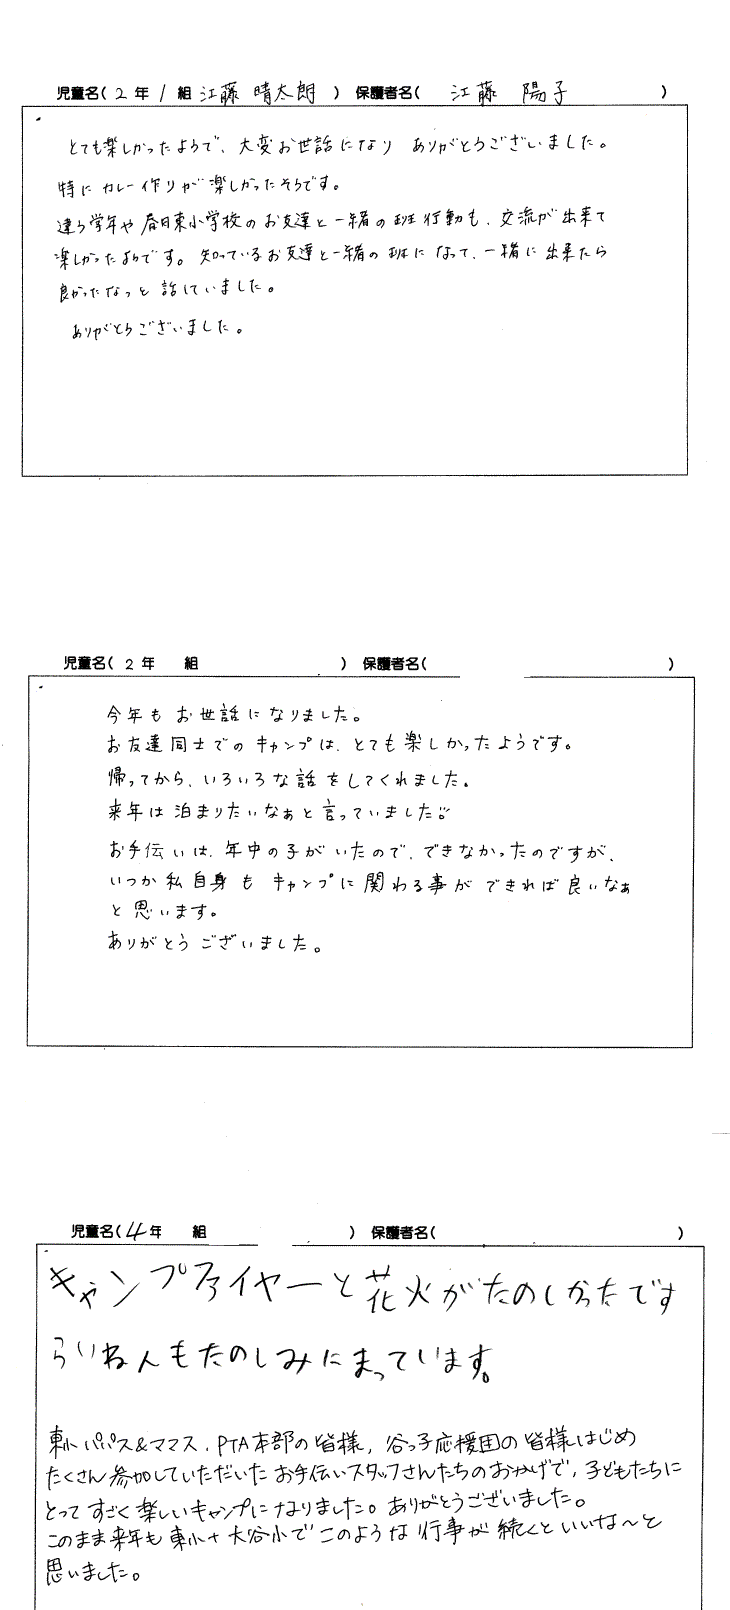 児童名(2年1組 江藤 晴太朗) 保護者名(江藤 陽子)
とても楽しかったようで、大変お世話になり ありがとうございました。
特にカレー作りが楽しかったそうです。
違う学年や春日東小学校のお友達と一緒の班行動も、交流が出来て
楽しかったようです。知っているお友達と一緒の班になって、一緒に出来たら
良かったなっと話していました。
ありがとうございました。
児童名(2年 組 ) 保護者名( )
今年もお世話になりました。
お友達同士でのキャンプは、とても楽しかったようです。
帰ってから、いろいろな話をしてくれました。
来年は泊まりたいなぁと言っていました
お手伝いは、年中の子がいたので、できなかったのですが、
いつか私自身もキャンプに関わる事ができれば良いなぁ
と思います。
ありがとうございました。
児童名(4年 組 ) 保護者名( )
キャンプファイヤーと花火がたのしかったです
らいねんもたのしみにまっています。
東小パパス&ママス、PTA本部の皆様、谷っ子応援団の皆様はじめ
たくさん参加していただいたお手伝いスタッフさんたちのおかげで、子どもたちに
とってすごく楽しいキャンプになりました。ありがとうございました。
このまま来年も東小+大谷小でこのような行事が続くといいな～と
思いました。